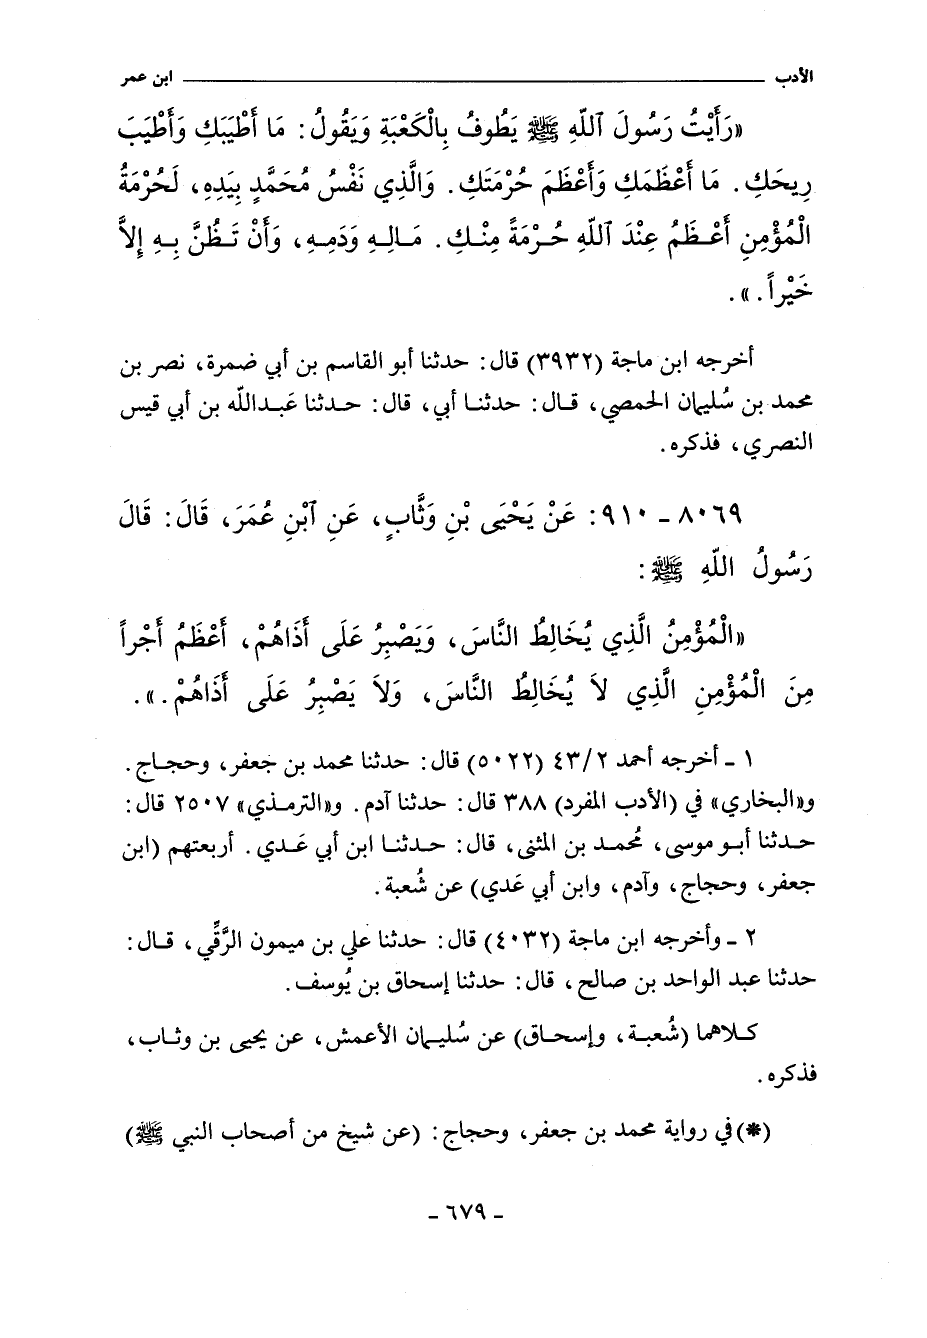 الأدب ـــــــــ ابن عمر
«رَأَيْتُ رَسُولَ ٱللّهِ ﷺ يَطُوفُ بِالْكَعْبَةِ وَيَقُولُ: مَا أَطْيَبَكِ وَأَطْيَبَ
رِيحَكِ. مَا أَعْظَمَكِ وَأَعْظَمَ حُرْمَتَكِ. وَالَّذِي نَفْسُ مُحَمَّدٍ بِيَدِهِ، لَحُرْمَةُ
الْمُؤْمِنِ أَعْظَمُ عِنْدَ ٱللّهِ حُرْمَةً مِنْكِ. مَالِهِ وَدَمِهِ، وَأَنْ تَظُنَّ بِهِ إِلاَّ
خَيْراً.».
أخرجه ابن ماجة (٣٩٣٢) قال: حدثنا أبو القاسم بن أبي ضمرة، نصر بن
محمد بن سُليمان الحمصي، قال: حدثنا أبي، قال: حدثنا عَبدالله بن أبي قيس
النصري، فذكره.
٨٠٦٩ - ٩١٠: عَنْ يَحْيَى بْنِ وَثَّابٍ، عَنِ ٱبْنِ عُمَرَ، قَالَ: قَالَ
رَسُولُ اللّهِ ﷺ:
«الْمُؤْمِنُ الَّذِي يُخَالِطُ النَّاسَ، وَيَصْبِرُ عَلَى أَذَاهُمْ، أَعْظَمُ أَجْراً
مِنَ الْمُؤْمِنِ الَّذِي لاَ يُخَالِطُ النَّاسَ، وَلاَ يَصْبِرُ عَلَى أَذَاهُمْ.».
١ - أخرجه أحمد ٤٣/٢ (٥٠٢٢) قال: حدثنا محمد بن جعفر، وحجاج.
و«البخاري» في (الأدب المفرد) ٣٨٨ قال: حدثنا آدم. و«الترمذي» ٢٥٠٧ قال:
حدثنا أبو موسى، مُحمد بن المثنى، قال: حدثنا ابن أبي عَدي. أربعتهم (ابن
جعفر، وحجاج، وآدم، وابن أبي عَدي) عن شُعبة.
٢ - وأخرجه ابن ماجة (٤٠٣٢) قال: حدثنا علي بن ميمون الرَّقِّي، قال:
حدثنا عبد الواحد بن صالح، قال: حدثنا إسحاق بن يُوسف.
كلاهما (شُعبة، وإسحاق) عن سُليمان الأعمش، عن يحيى بن وثاب،
فذكره.
(*) في رواية محمد بن جعفر، وحجاج: (عن شيخ من أصحاب النبي ﷺ)
- ٦٧٩ -